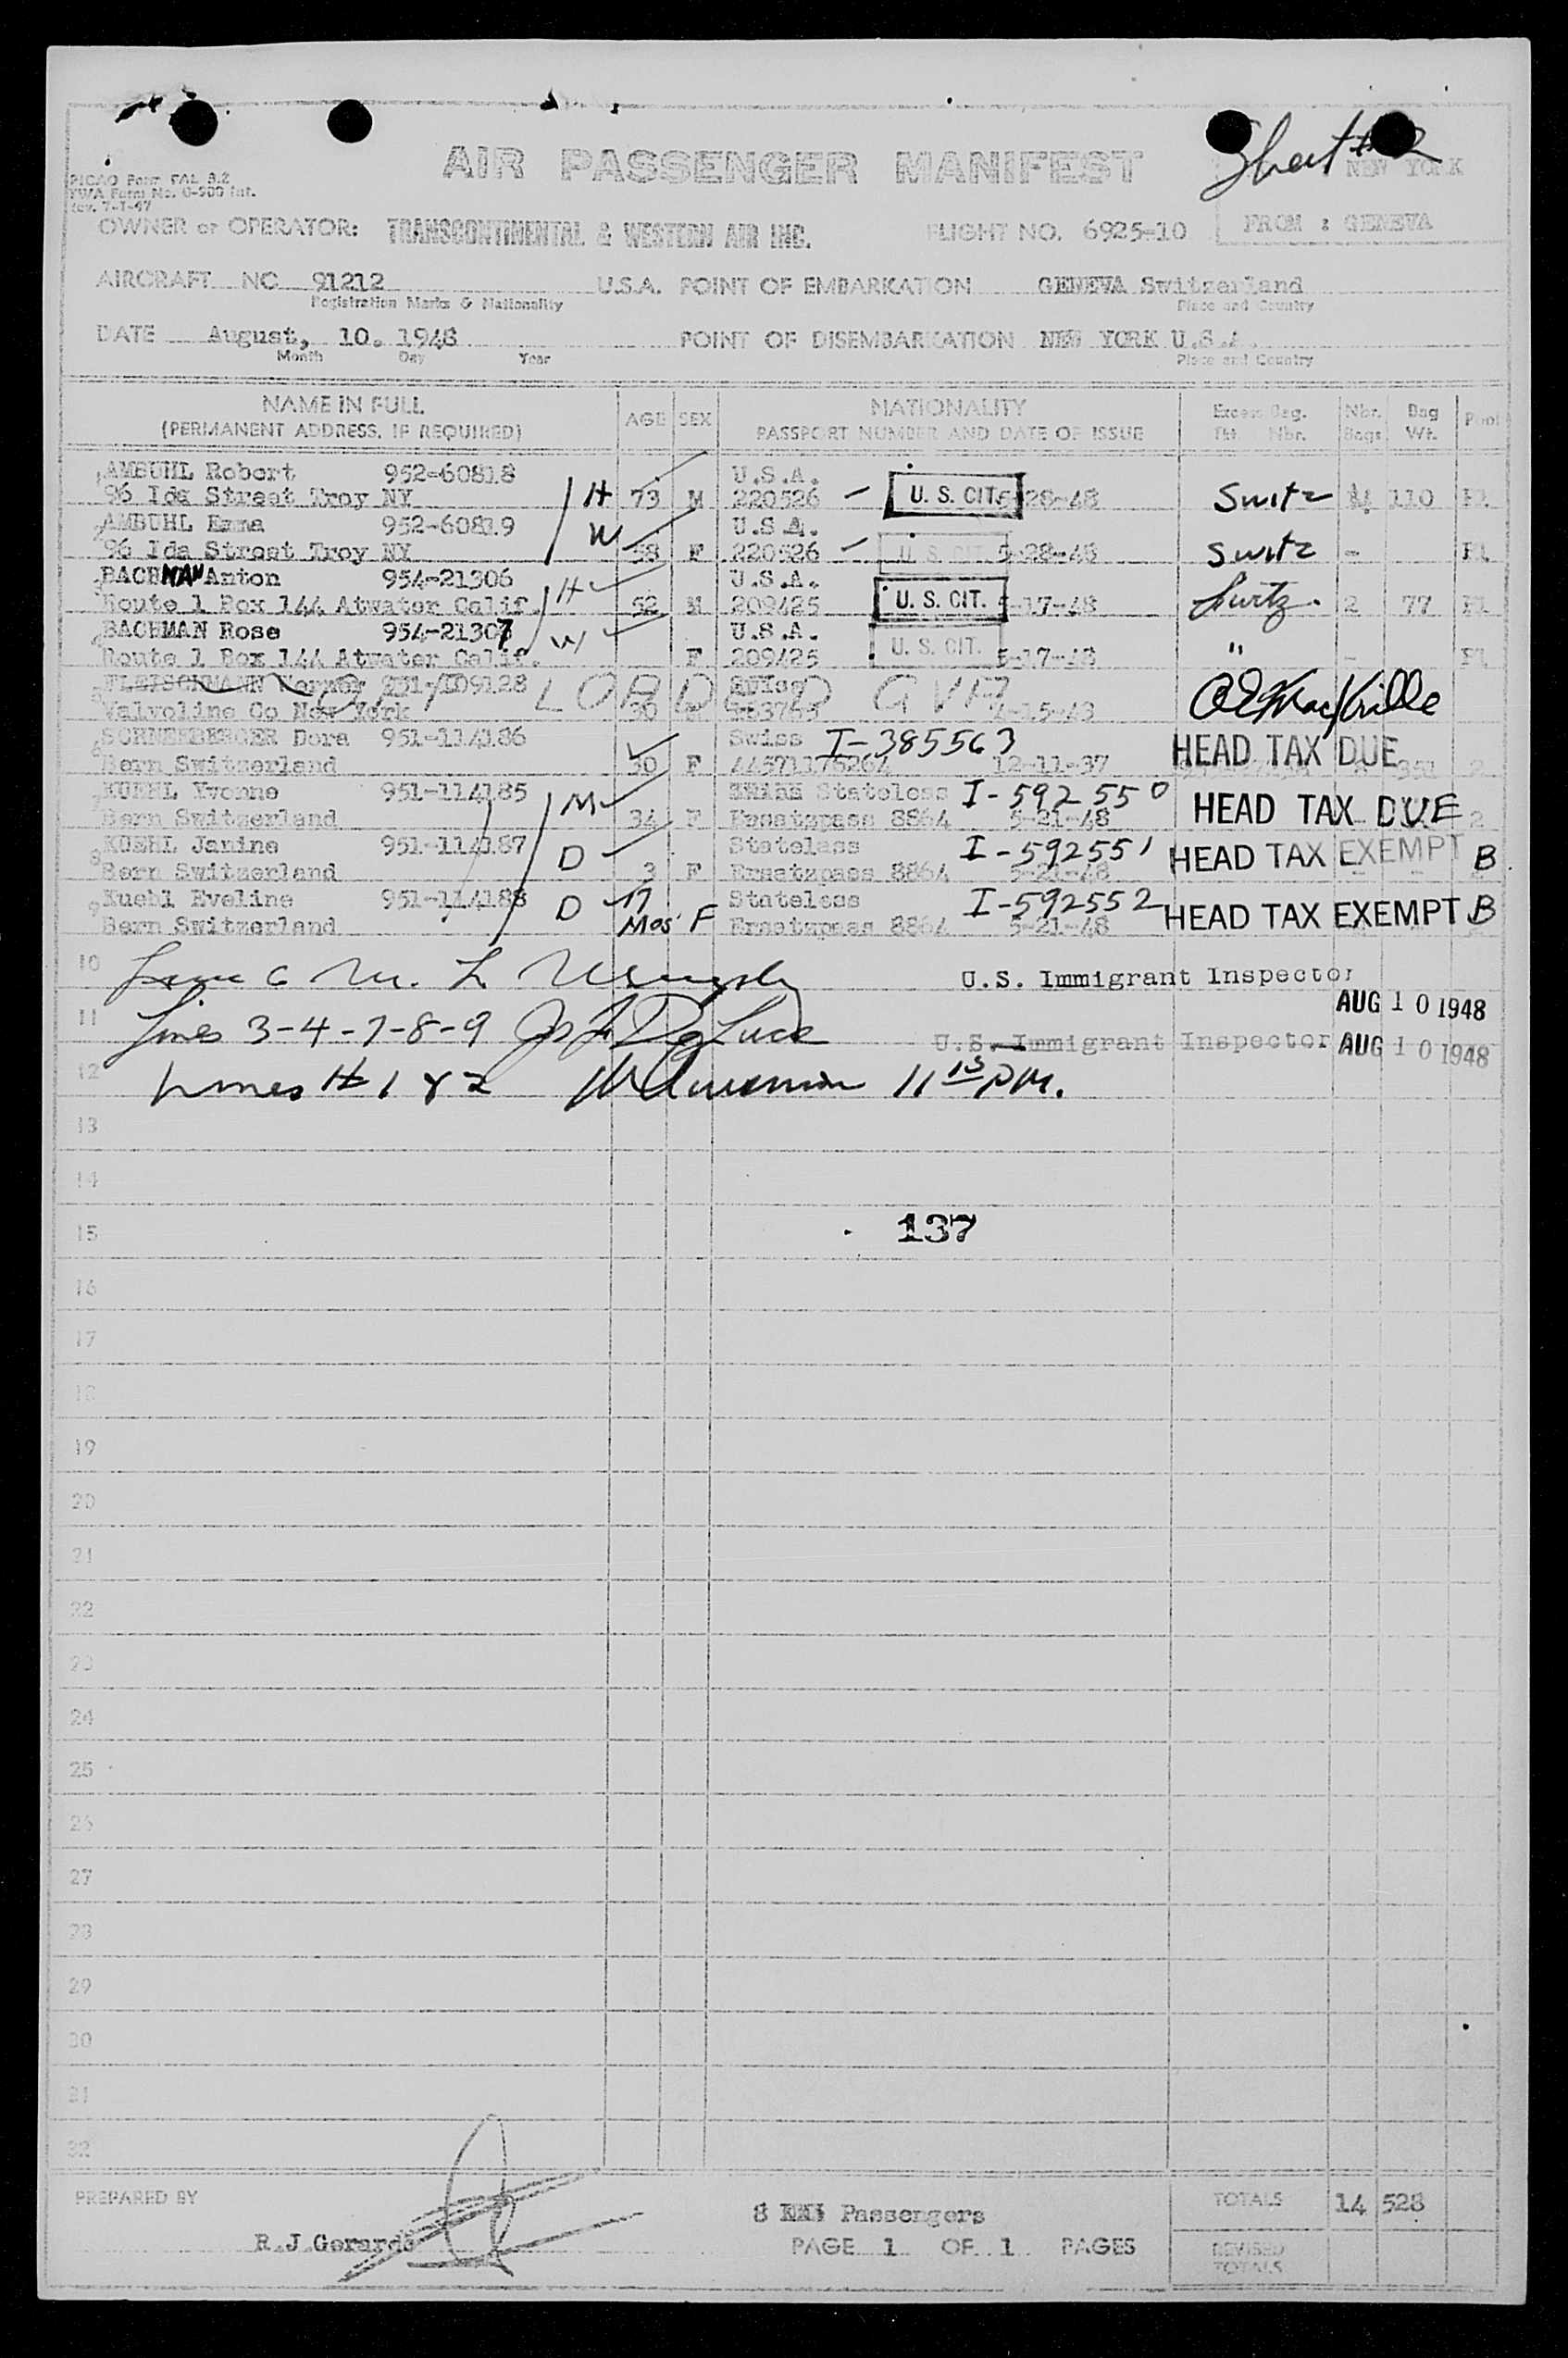 Sheet #2
AIR PASSENGER MANIFEST
NEW YORK
PICAO Form FAL 3.2
TWA Form No. 0-500 Int.
Rev. 7-1-47
OWNER or OPERATOR: TRANSCONTINENTAL & WESTERN AIR INC. FLIGHT NO. 6925-10 FROM : GENEVA
AIRCRAFT NC 91212 U.S.A. POINT OF EMBARKATION GENEVA Switzerland
Registration Marks & Nationality Place and Country
DATE August, 10. 1948 POINT OF DISEMBARKATION NEW YORK U.S.A.
Month Day Year Place and Country
NAME IN FULL AGE SEX NATIONALITY Excess Bag. Nbr. Bag Pool
(PERMANENT ADDRESS, IF REQUIRED) PASSPORT NUMBER AND DATE OF ISSUE Tkt Nbr. Bags Wt.
1 AMBUHL Robert 952-60818 U.S.A.
96 Ida Street Troy NY H 73 M 220526 U. S. CIT. 5-28-48 Switz 110 Fl
2 AMBUHL Emma 952-60819 U.S.A.
96 Ida Street Troy NY W 58 F 220526 U. S. CIT. 5-28-48 Switz - Fl
3 BACHMAN Anton 954-21306 H U.S.A.
Route 1 Box 144 Atwater Calif. 52 M 209425 U. S. CIT. 5-17-48 Switz. 2 77 Fl
4 BACHMAN Rose 954-21307 W U.S.A.
Route 1 Box 144 Atwater Calif. F 209425 U. S. CIT. 5-17-48 " - Fl
5 FLEISCHMANN Werner 951-109128 Swiss
OFF LOADED GVA
Valvoline Co New York 30
6 SCHNEEBERGER Dora 951-114186 Swiss I-385563 HEAD TAX DUE
Bern Switzerland 30 F 12-11-37 351 2
7 KUEHL Yvonne 951-114185 M Stateless I-592550 HEAD TAX DUE
Bern Switzerland 34 F Ersatzpass 8864 5-21-48 2
8 KUEHL Janine 951-114187 D Stateless I-592551 HEAD TAX EXEMPT B
Bern Switzerland 3 F Ersatzpass 8864 5-21-48
9 Kuehl Eveline 951-114188 D 17 Stateless I-592552 HEAD TAX EXEMPT B
Bern Switzerland Mos F Ersatzpass 8864 5-21-48
10 U.S. Immigrant Inspector
AUG 10 1948
11 Lines 3-4-7-8-9
U.S. Immigrant Inspector AUG 10 1948
12 Lines # 1 & 2 11 15 PM.
13
14
15 137
16
17
18
19
20
21
22
23
24
25
26
27
28
29
30
31
32
PREPARED BY TOTALS 14 528
8 Passengers
R.J.Gerards PAGE 1 OF 1 PAGES REVISED
TOTALS